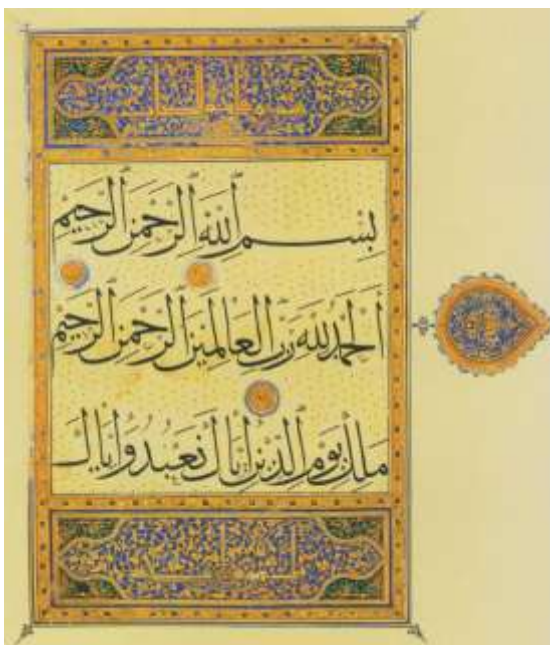 بِسْمِ اللَّهِ الرَّحْمَنِ الرَّحِيمِ
الْحَمْدُ لِلَّهِ رَبِّ الْعَالَمِينَ الرَّحْمَنِ الرَّحِيمِ
مَلِكِ يَوْمِ الدِّينِ إِيَّاكَ نَعْبُدُ وَإِيَّاكَ